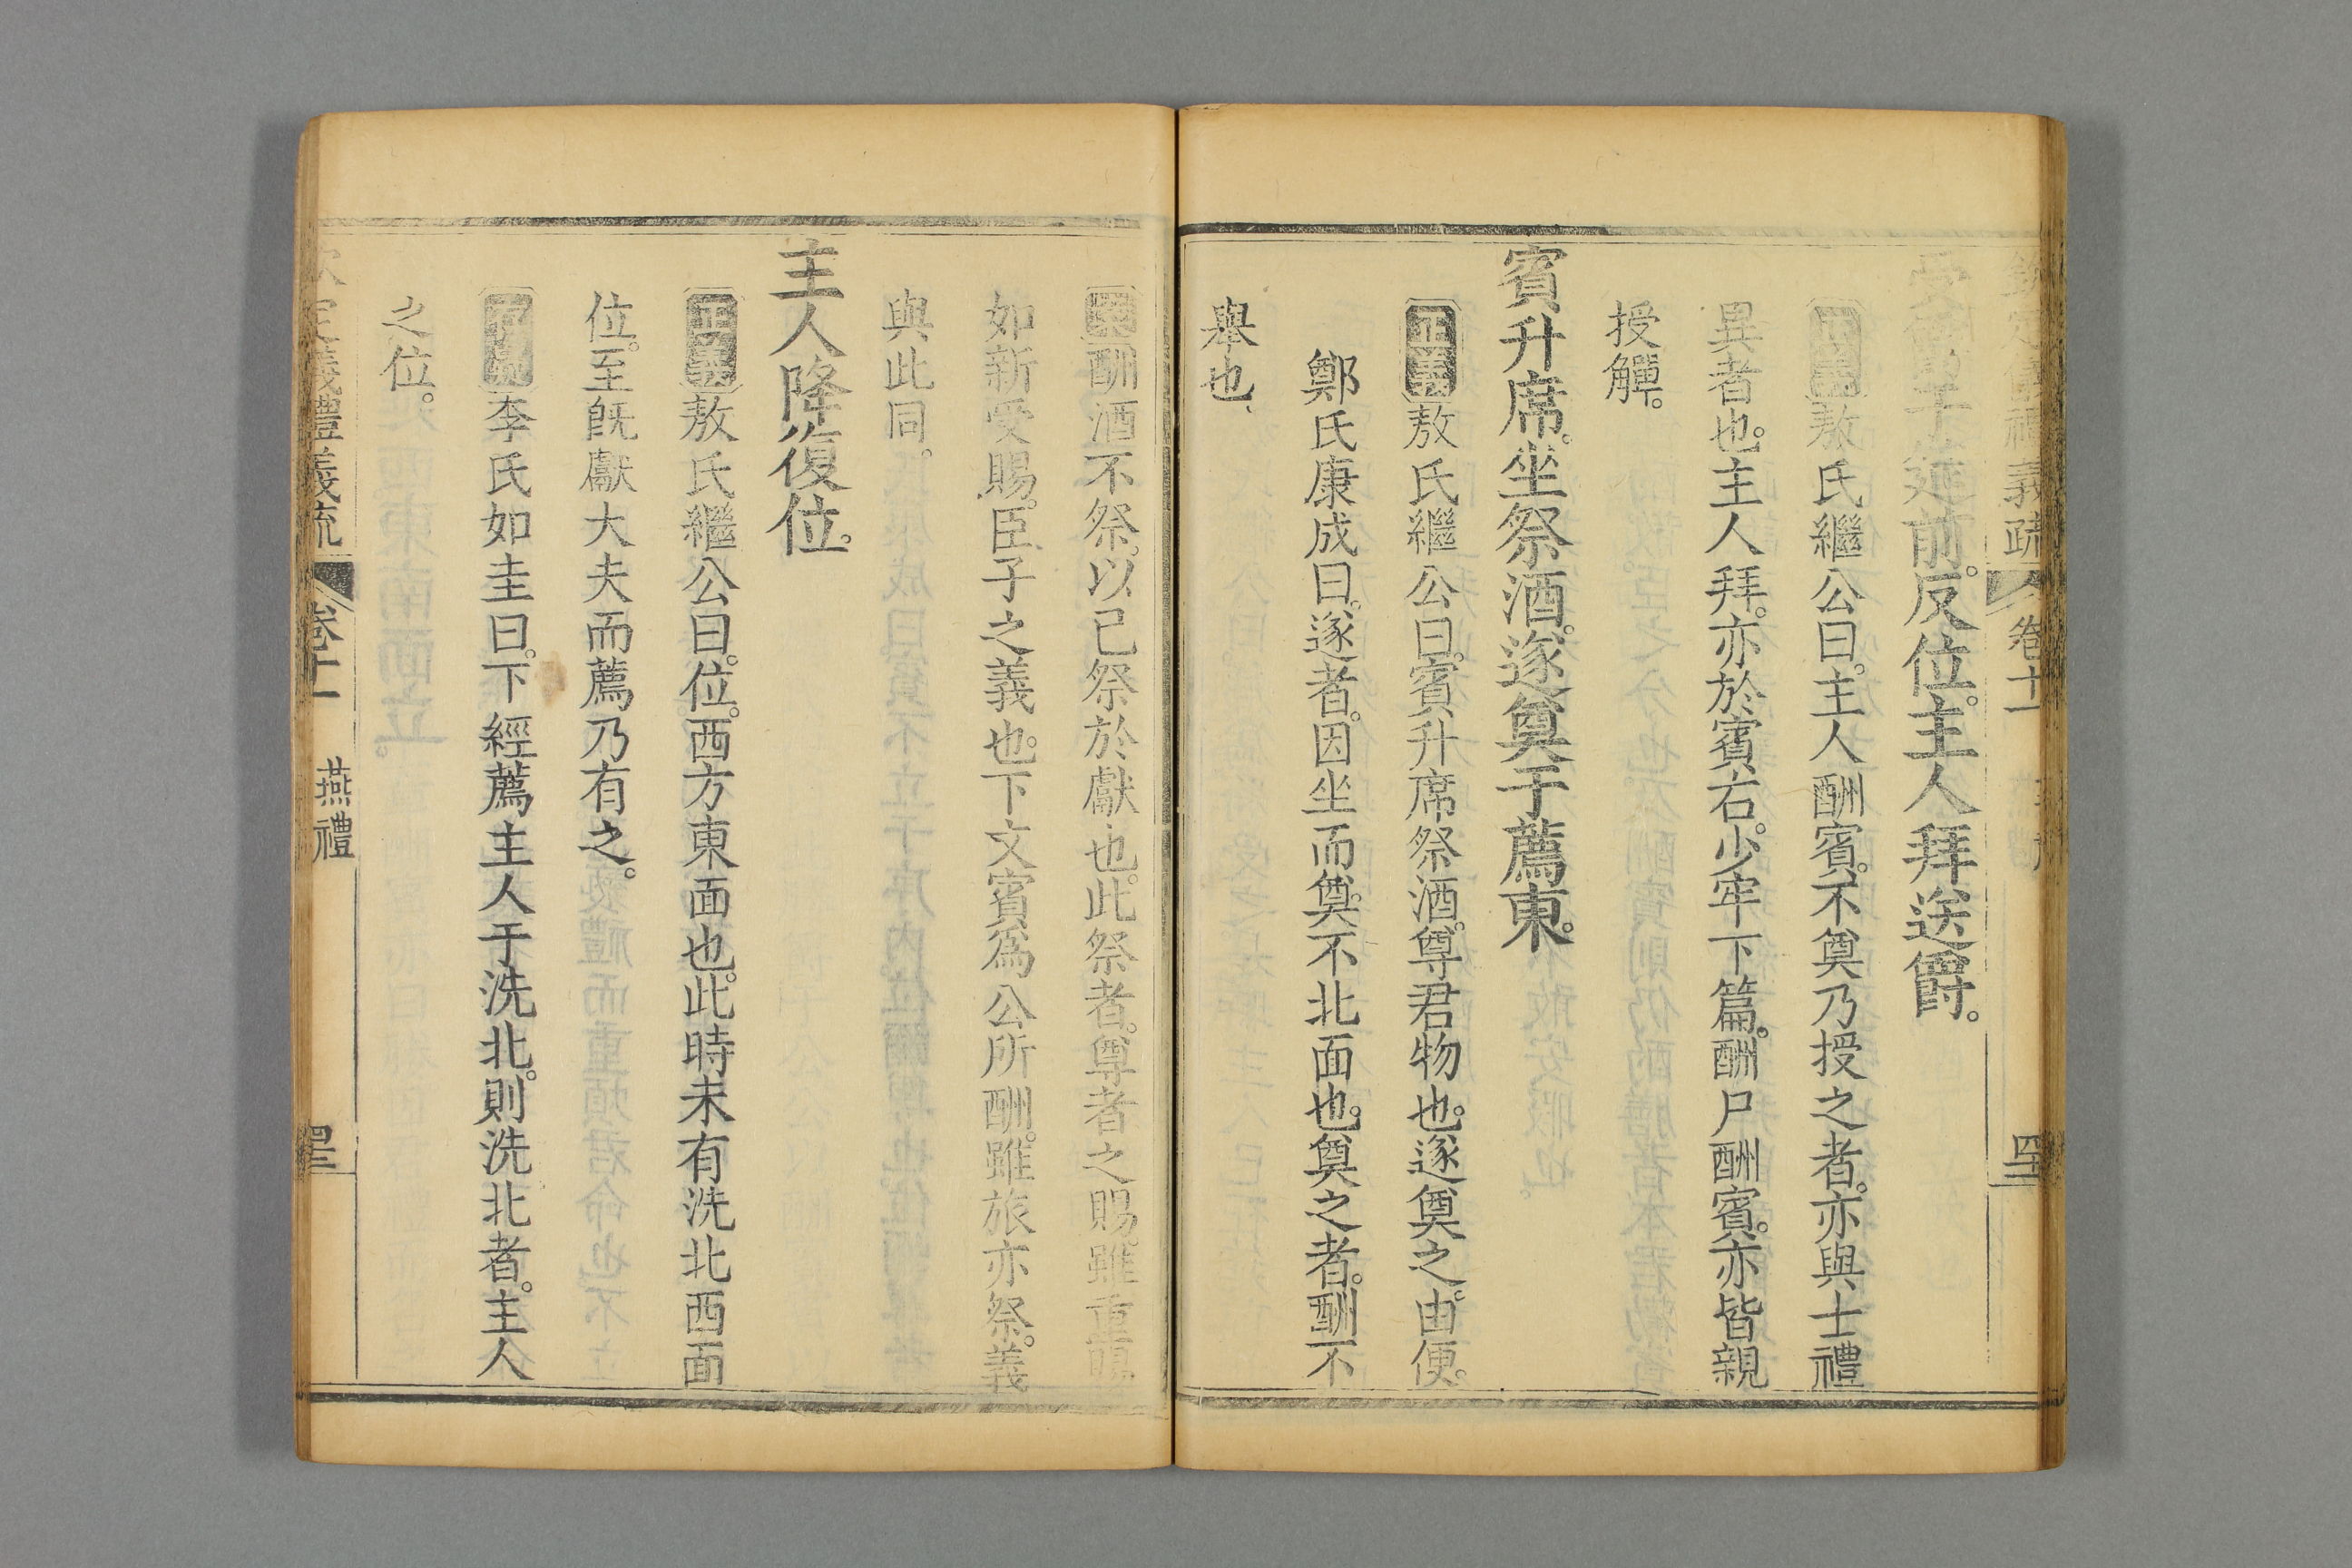 義疏 卷十
受爵于筵前。反位。主人拜送爵。
正義敖氏繼公曰。主人酬賓。不奠乃授之者。亦與士禮
異者也。主人拜。亦於賓右。少牢下篇。酬尸酬賓。亦皆親
授觶。
賓升席。坐祭酒。遂奠于薦東。
正義敖氏繼公曰。賓升席祭酒。尊君物也。遂奠之。由便。
鄭氏康成曰。遂者。因坐而奠。不北面也。奠之者。酬不
舉也、
案酬酒不祭。以已祭於獻也。此祭者。尊者之賜。雖重
如新受賜。臣子之義也。下文賓爲公所酬。雖旅亦祭。義
與此同。
主人降復位。
正義敖氏繼公曰。位。西方東面也。此時未有洗北西面
位。至旣獻大夫而薦乃有之。
存疑李氏如圭曰。下經薦主人于洗北。則洗北者。主人
之位。
欽定義禮義疏 卷十一 燕禮